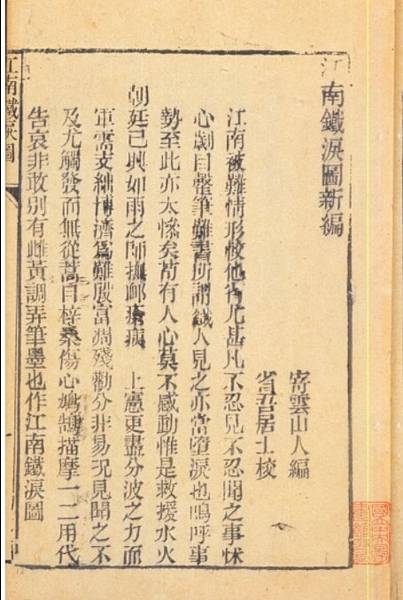 江南鐵淚圖新編
寄雲山人編
省吾居士校
江南被難情形較他省尤甚凡不忍見不忍聞之事怵
心劌目罄筆難書所謂鐵人見之亦當墮淚也嗚呼事
勢至此亦太慘矣苟有人心莫不感動惟是救援水火
朝廷已興如雨之師撫卹瘡痍　上憲更盡分波之力而
軍需支絀博濟爲難殷富凋殘勸分非易況見聞之不
及尤觸發而無從蒿目梓桑傷心鳩鵠描摩一二用代
告哀非敢別有雌黃調弄筆墨也作江南鐵淚圖
江南鐵淚圖